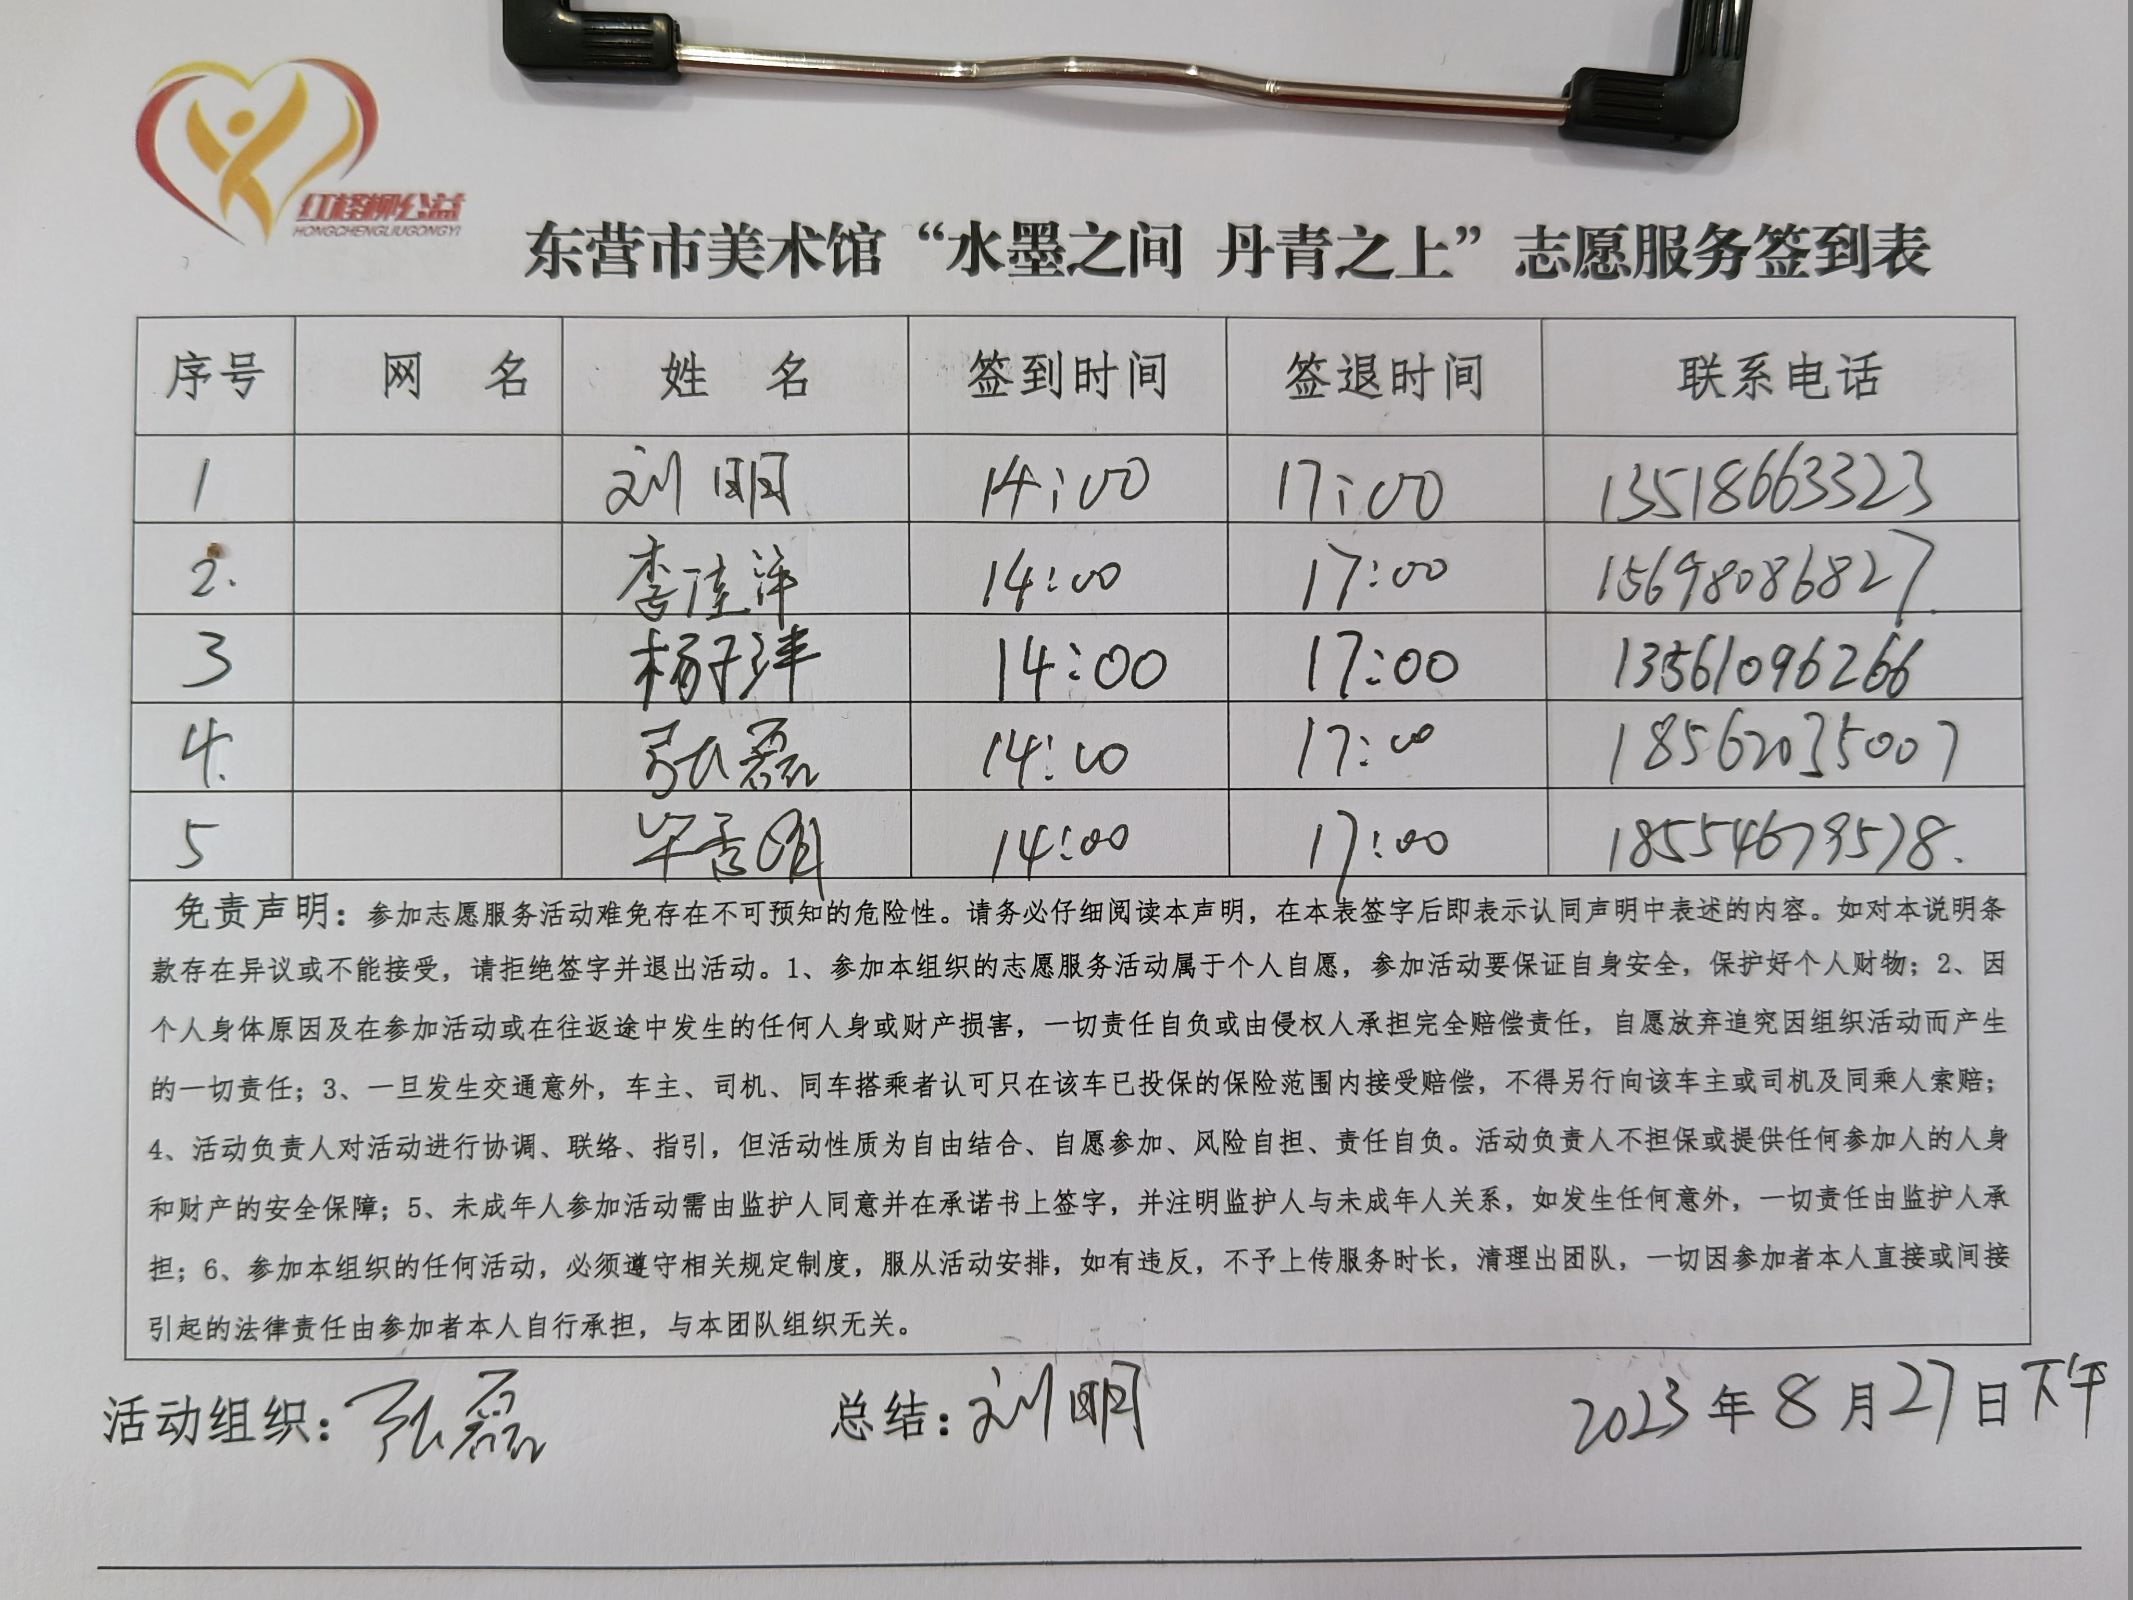 红柽柳公益
HONGCHENGLIUGONGYI
东营市美术馆“水墨之间 丹青之上”志愿服务签到表
序号 网 名 姓 名 签到时间 签退时间 联系电话
1 刘明 14:00 17:00 13518663323
2. 李佳洋 14:00 17:00 15698086827
3 杨子洋 14:00 17:00 13561096266
4. 张磊 14:00 17:00 18562035007
5 14:00 17:00 18554679578.
免责声明：参加志愿服务活动难免存在不可预知的危险性。请务必仔细阅读本声明，在本表签字后即表示认同声明中表述的内容。如对本说明条
款存在异议或不能接受，请拒绝签字并退出活动。1、参加本组织的志愿服务活动属于个人自愿，参加活动要保证自身安全，保护好个人财物；2、因
个人身体原因及在参加活动或在往返途中发生的任何人身或财产损害，一切责任自负或由侵权人承担完全赔偿责任，自愿放弃追究因组织活动而产生
的一切责任；3、一旦发生交通意外，车主、司机、同车搭乘者认可只在该车已投保的保险范围内接受赔偿，不得另行向该车主或司机及同乘人索赔；
4、活动负责人对活动进行协调、联络、指引，但活动性质为自由结合、自愿参加、风险自担、责任自负。活动负责人不担保或提供任何参加人的人身
和财产的安全保障；5、未成年人参加活动需由监护人同意并在承诺书上签字，并注明监护人与未成年人关系，如发生任何意外，一切责任由监护人承
担；6、参加本组织的任何活动，必须遵守相关规定制度，服从活动安排，如有违反，不予上传服务时长，清理出团队，一切因参加者本人直接或间接
引起的法律责任由参加者本人自行承担，与本团队组织无关。
活动组织：张磊 总结：刘明 2023年8月27日下午